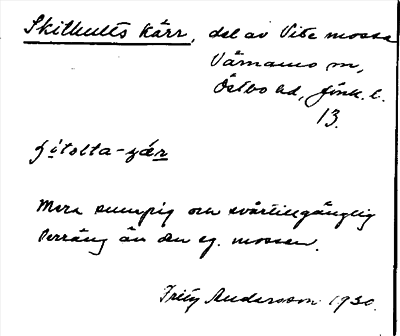 Skithults kärr, del av Vite mossa
Värnamo sn,
Östbo hd, Jönk. l.
13.
Mera sumpig och svårtillgänglig
terräng än den eg. mossen.
Fritz Andersson 1930.